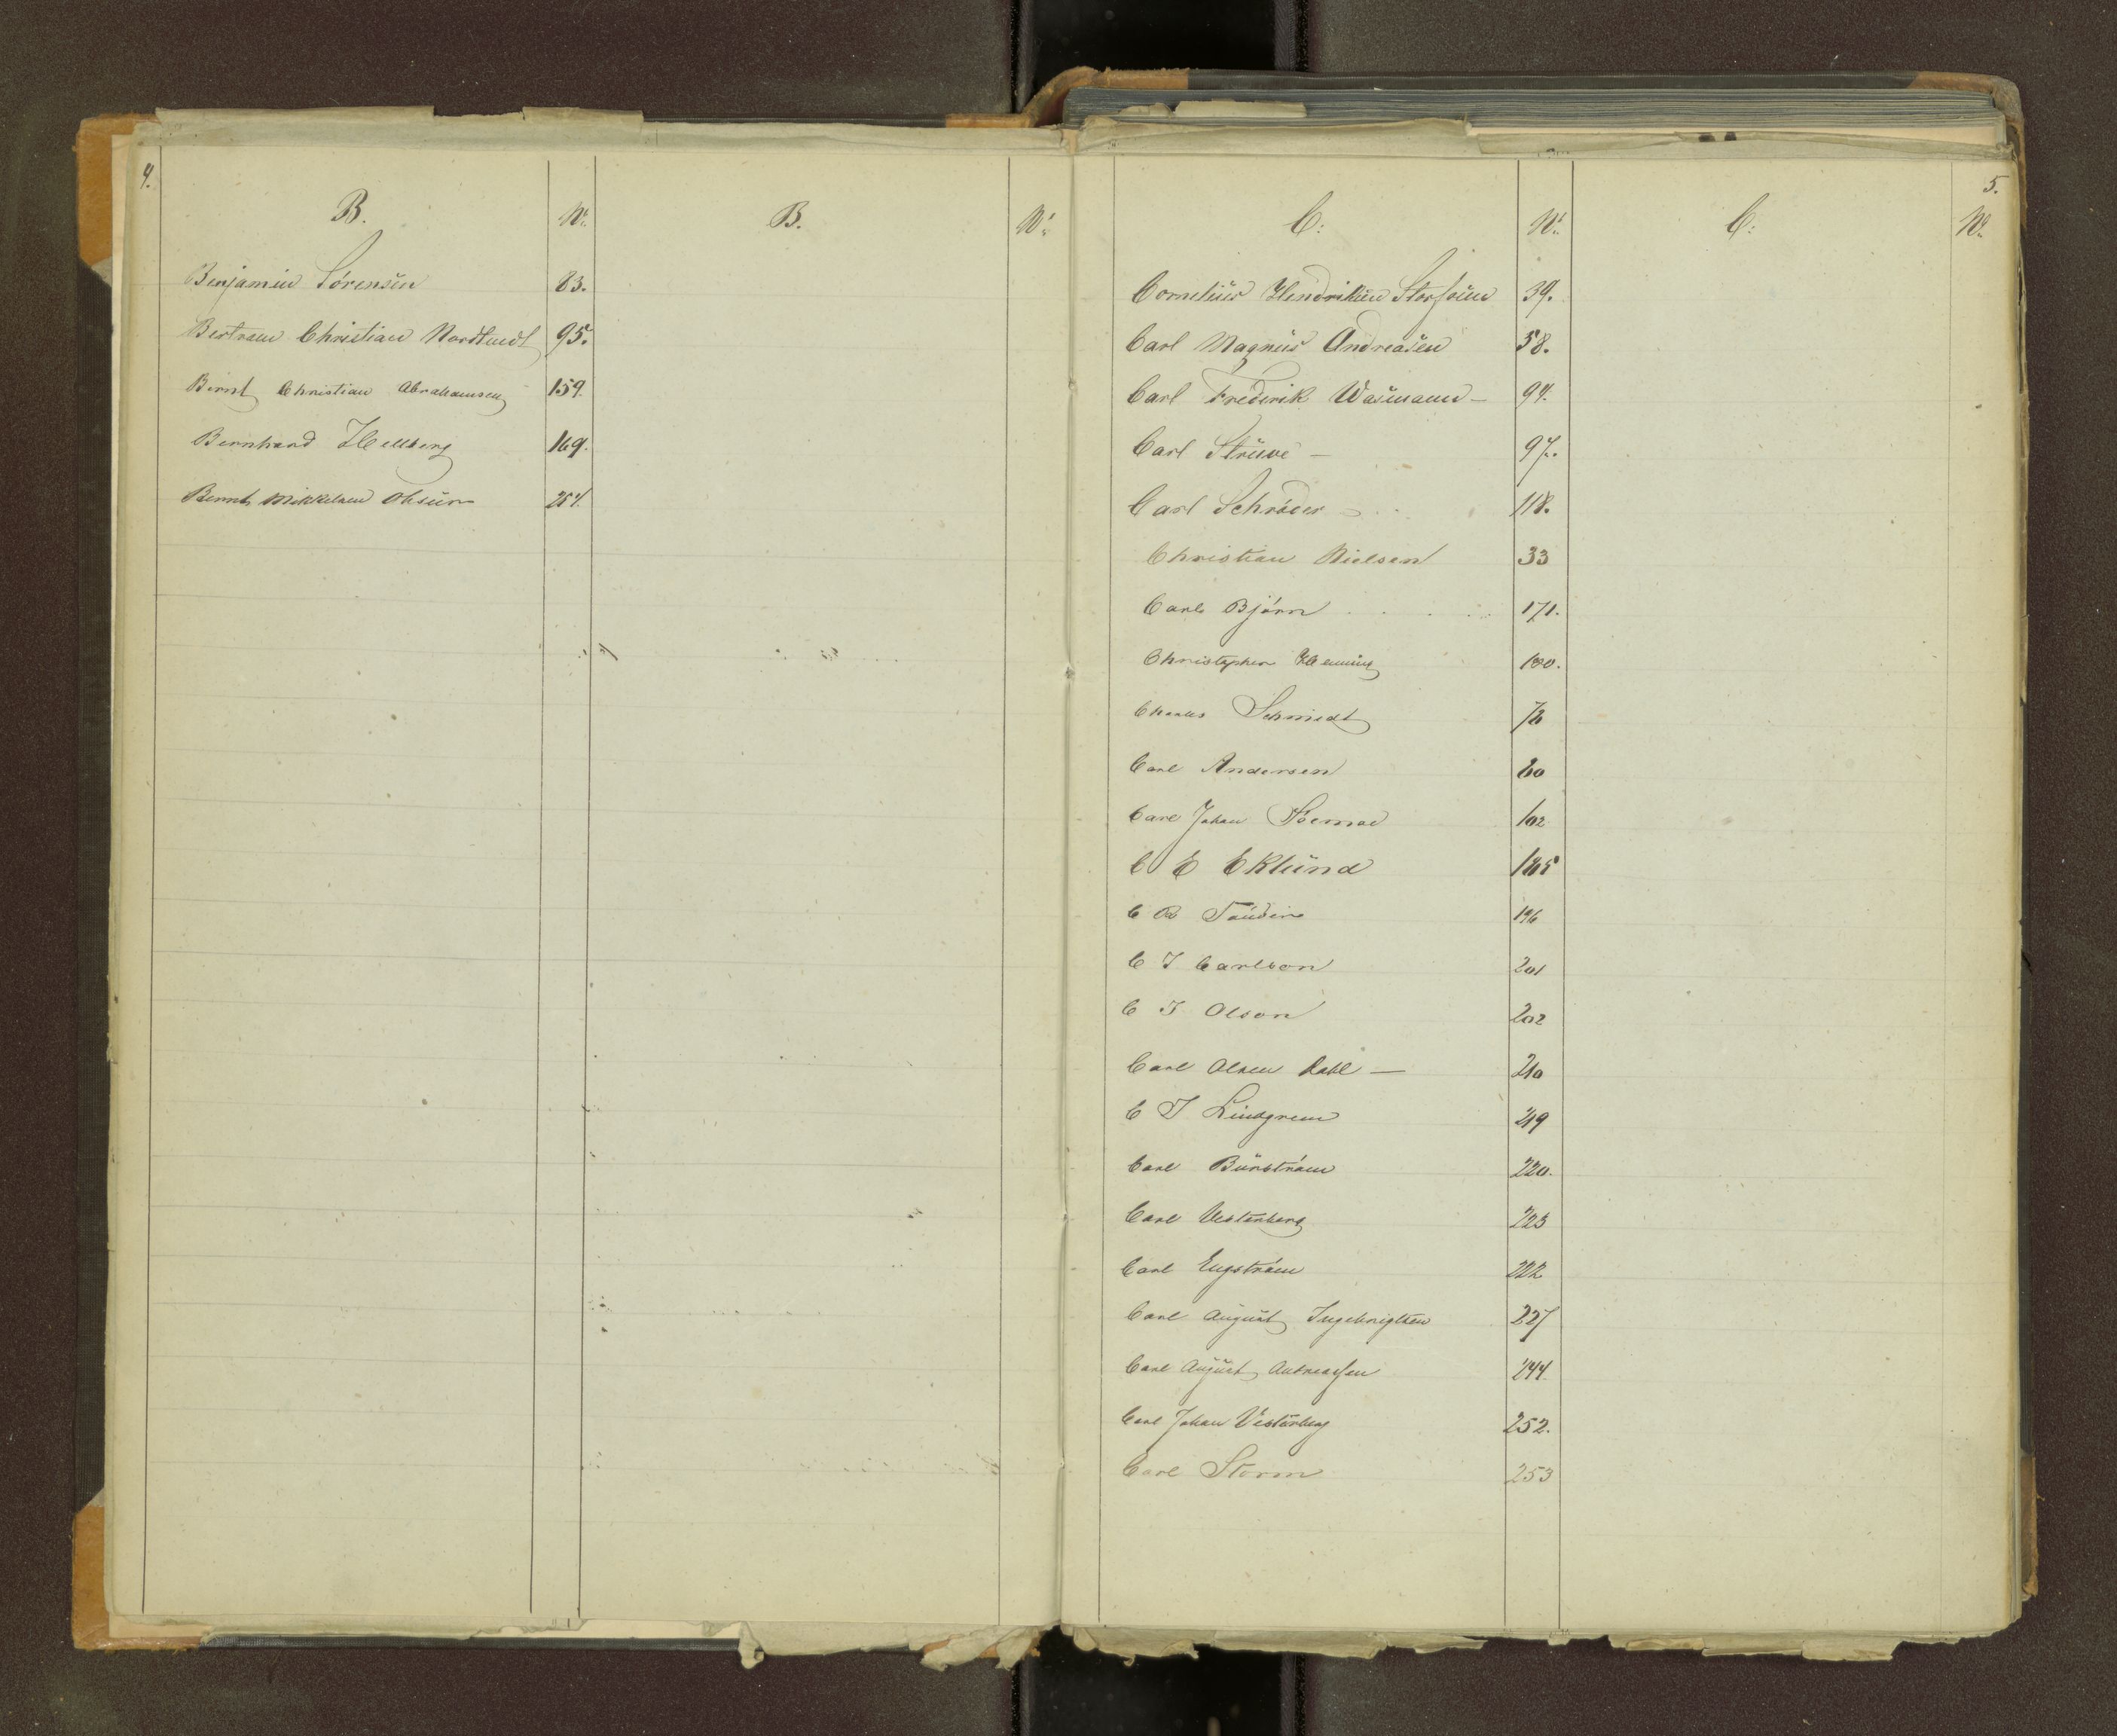 4.
B. No.
B. No.
Benjamin Sörensen 83.
Bertram Christian Nordtuedt 95.
Bernt Christian Abrahamsen 159.
Bernhard Hellberg 169.
Bernt Mikkelsen Olsen 254.
5.
C: No.
C: No.
Cornelius Hendriksen 39.
Carl Magnus Andreasen 58.
Carl Frederik Wasmann — 94.
Carl Strüve — 97.
Carl Schröder 118.
Christian Nielsen 33
Carl Björn 171.
Christopher Henning 180.
Charles Schmidt
Carl Andersen
Carl Johan
C E Eklund 185
C 196
C J Carlson 201
C J Olson 202
Carl Olsen Dahl — 210
C J Lindgren 219
Carl Burström 220.
Carl Vesterberg 223
Carl Engström 222
Carl August Ingebrigtsen 227
Carl August Andreassen 244
Carl Johan Vesterberg 252.
Carl Storm 253